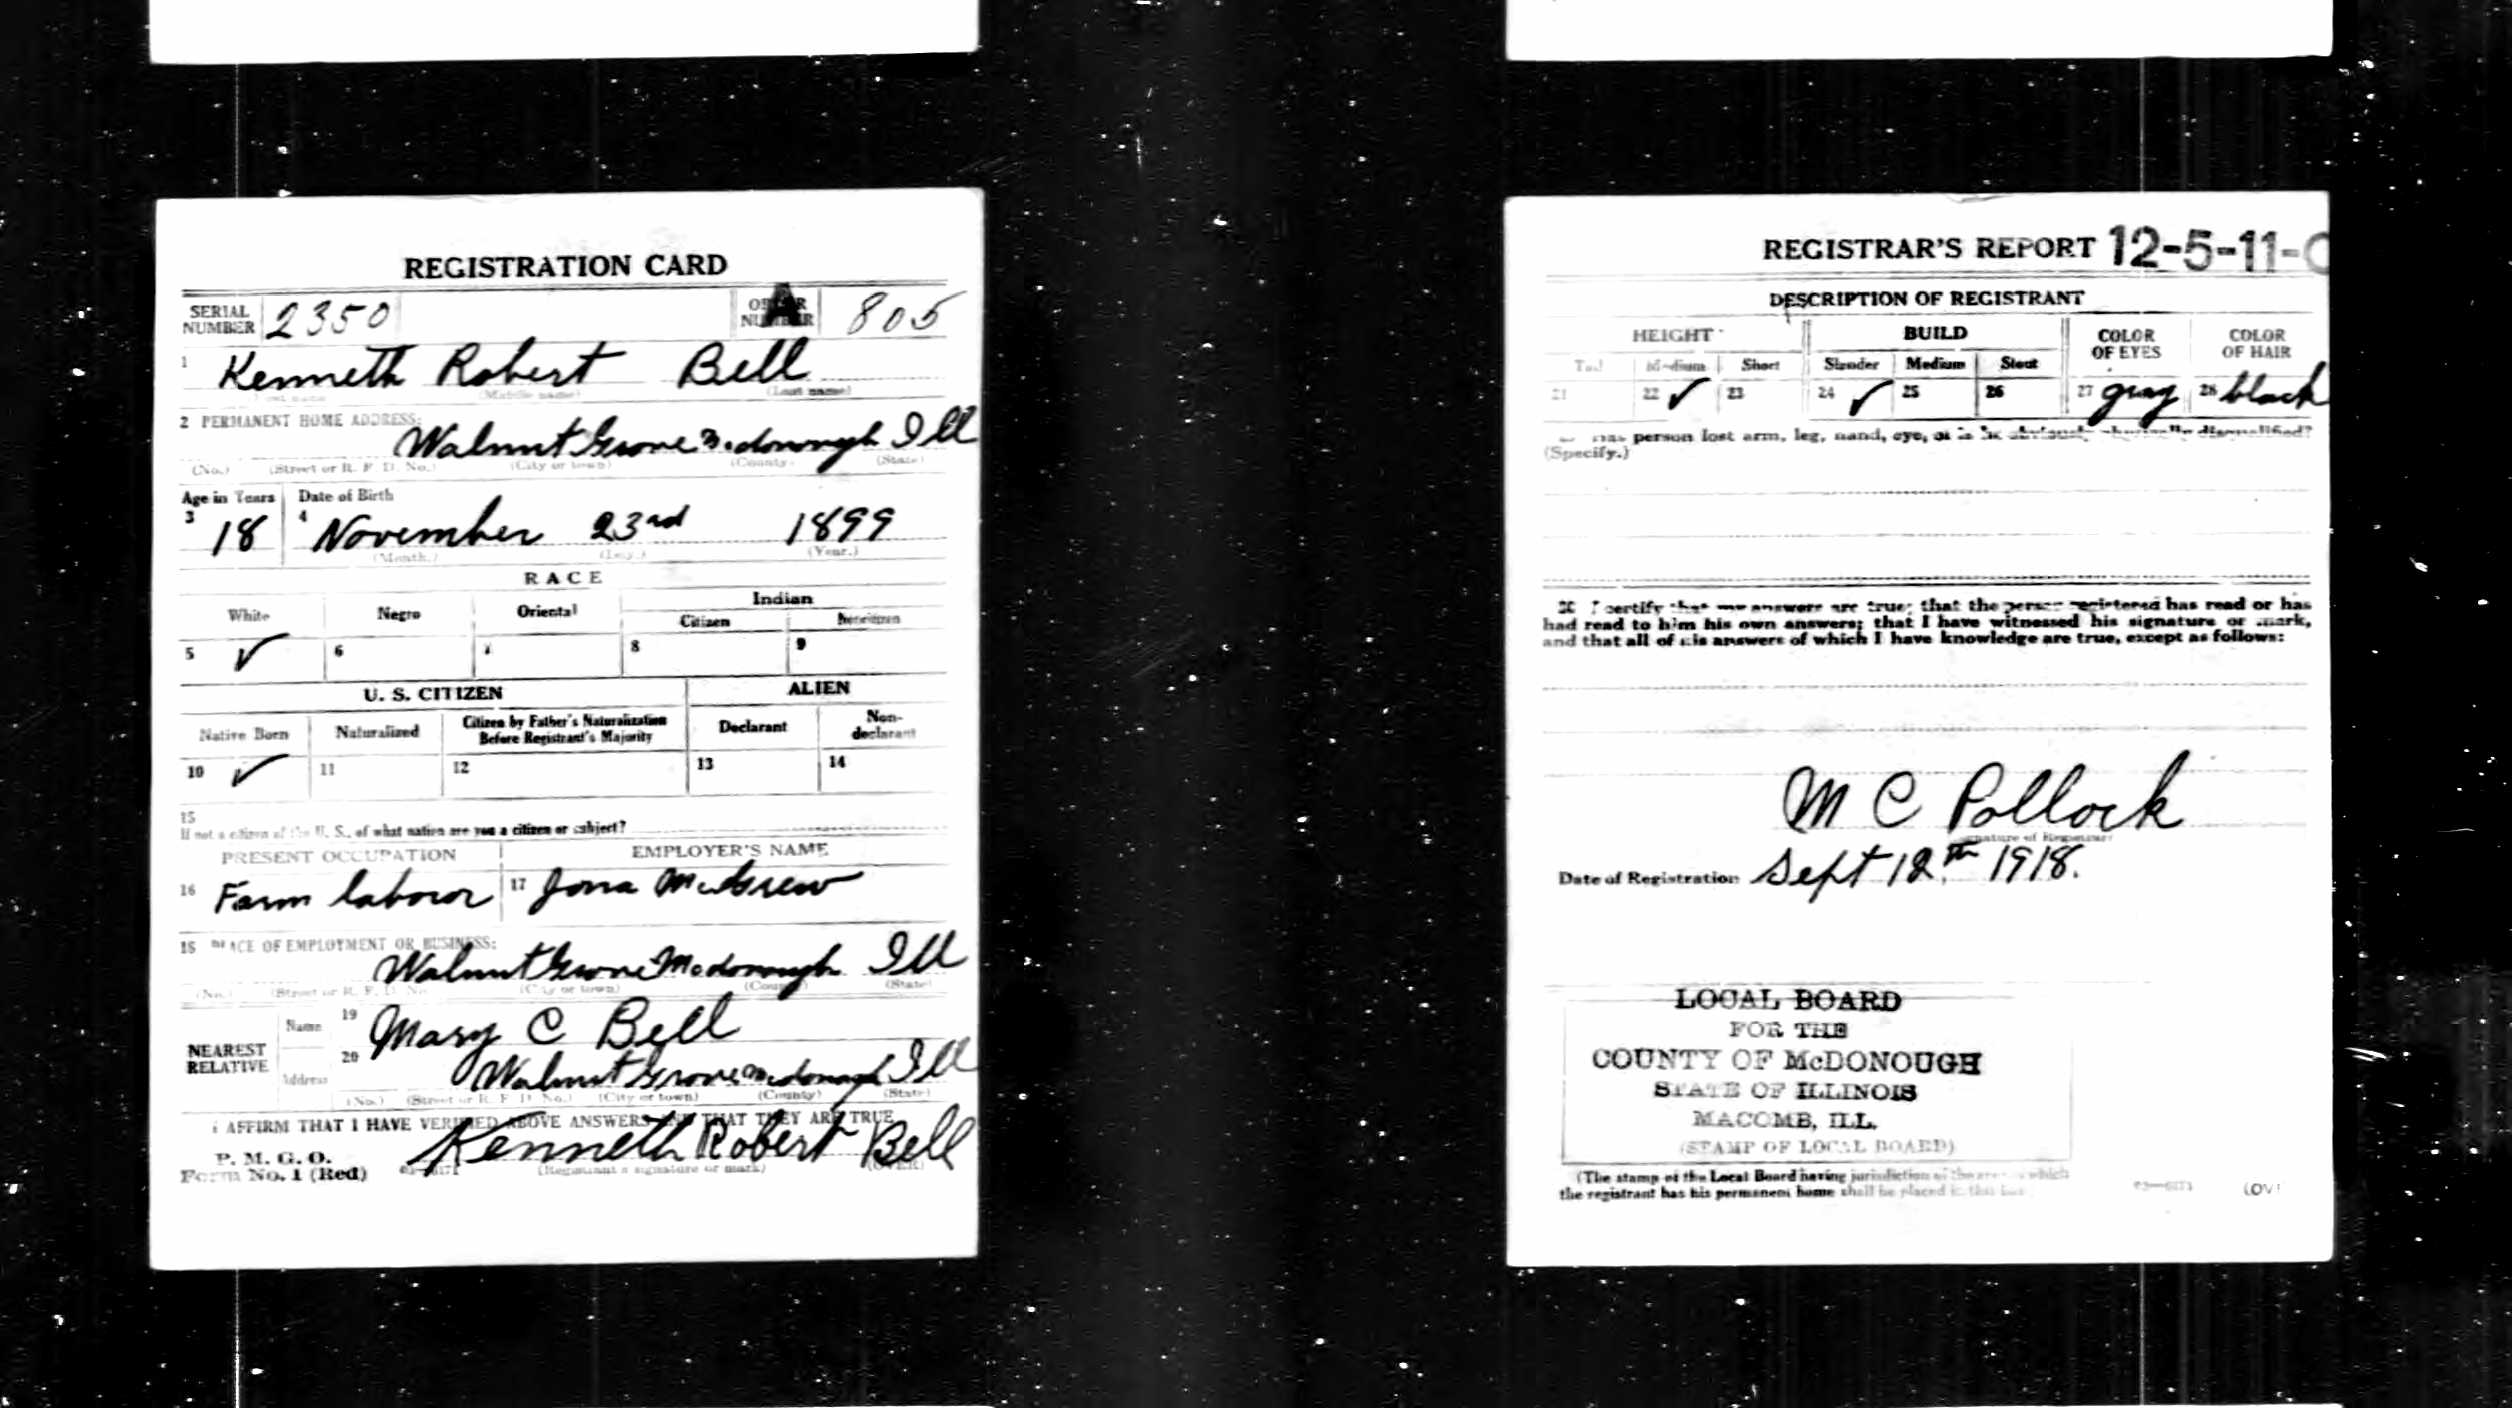 REGISTRATION CARD
SERIAL NUMBER 2350 ORDER NUMBER A 805
1 Kenneth Robert Bell
(Middle name) (Last name)
2 PERMANENT HOME ADDRESS:
Walnut Grove McDonough Ill
(No.) (Street or R. F. D. No.) (City or town) (County) (State)
Age in Years Date of Birth
3 18 4 November 23rd 1899
(Month.) (Day.) (Year.)
RACE
White Negro Oriental Indian
Citizen Noncitizen
5 ✓ 6 7 8 9
U. S. CITIZEN ALIEN
Native Born Naturalized Citizen by Father's Naturalization Before Registrant's Majority Declarant Non-declarant
10 ✓ 11 12 13 14
15
If not a citizen of the U. S., of what nation are you a citizen or subject?
PRESENT OCCUPATION EMPLOYER'S NAME
16 Farm labour 17 McGrew
18 PLACE OF EMPLOYMENT OR BUSINESS:
Walnut Grove McDonough Ill
(No.) (Street or R. F. D. No.) (City or town) (County) (State)
NEAREST RELATIVE Name 19 Mary C Bell
Address 20 Walnut Grove McDonough Ill
(No.) (Street or R. F. D. No.) (City or town) (County) (State)
I AFFIRM THAT I HAVE VERIFIED ABOVE ANSWERS AND THAT THEY ARE TRUE
P. M. G. O.
Form No. 1 (Red) Kenneth Robert Bell
(Registrant's signature or mark) (OVER)
REGISTRAR'S REPORT 12-5-11-C
DESCRIPTION OF REGISTRANT
HEIGHT BUILD COLOR OF EYES COLOR OF HAIR
Tall Medium Short Slender Medium Stout
21 22 ✓ 23 24 ✓ 25 26 27 gray 28 black
29 Has person lost arm, leg, hand, eye, or is he obviously physically disqualified?
(Specify.)
30 I certify that my answers are true; that the person registered has read or has
had read to him his own answers; that I have witnessed his signature or mark,
and that all of his answers of which I have knowledge are true, except as follows:
M C Pollock
(Signature of Registrar)
Date of Registration Sept 12th 1918.
LOCAL BOARD
FOR THE
COUNTY OF McDONOUGH
STATE OF ILLINOIS
MACOMB, ILL.
(STAMP OF LOCAL BOARD)
(The stamp of the Local Board having jurisdiction of the area in which
the registrant has his permanent home shall be placed in this box.)
03—6171 (OV